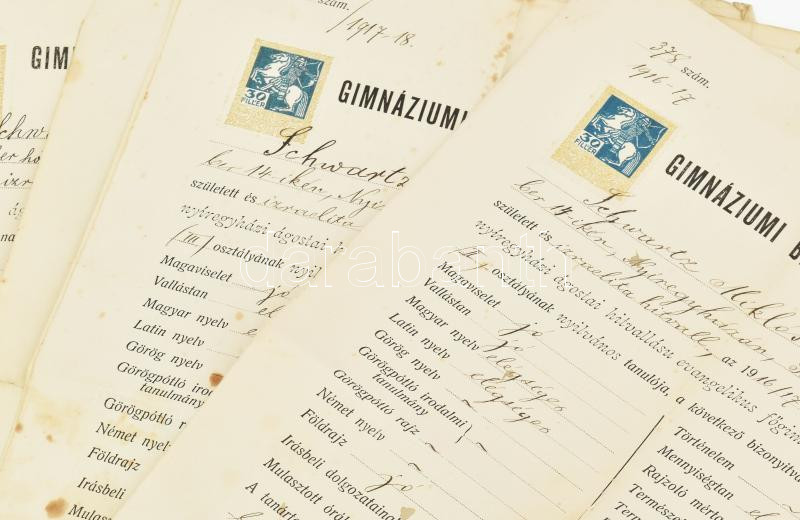 szám.
1917-18.
GIM
30
FILLÉR
GIMNÁZIUMI
Schwartz
ber 14.ikén, Nyí
született és izraelita
nyíregyházi ágostai h
III osztályának nyil
Magaviselet jó
Vallástan
Magyar nyelv
Latin nyelv
Görög nyelv
Görögpótló irod
tanulmány
Görögpótló r
Német nyel
Földrajz
Írásbeli
Mulasz
378 szám.
1916-17
30
FILLÉR
GIMNÁZIUMI B
Schwartz Miklós
ber 14.ikén, Nyíregyházán,
született és izraelita hitvallású, az 1916/17
nyíregyházi ágostai hitvallású evangélikus főgim
II osztályának nyilvános tanulója, a következő bizonyítvá
Magaviselet jó
Vallástan jó
Magyar nyelv elégséges
Latin nyelv elégséges
Görög nyelv ~
Görögpótló irodalmi
tanulmány ~
Görögpótló rajz ~
Német nyelv
Földrajz jó
Írásbeli dolgozatainak
Mulasztott órái
A tanárte
Történelem
Mennyiségtan
Rajzoló mérta
Természet
Termé
darabanth